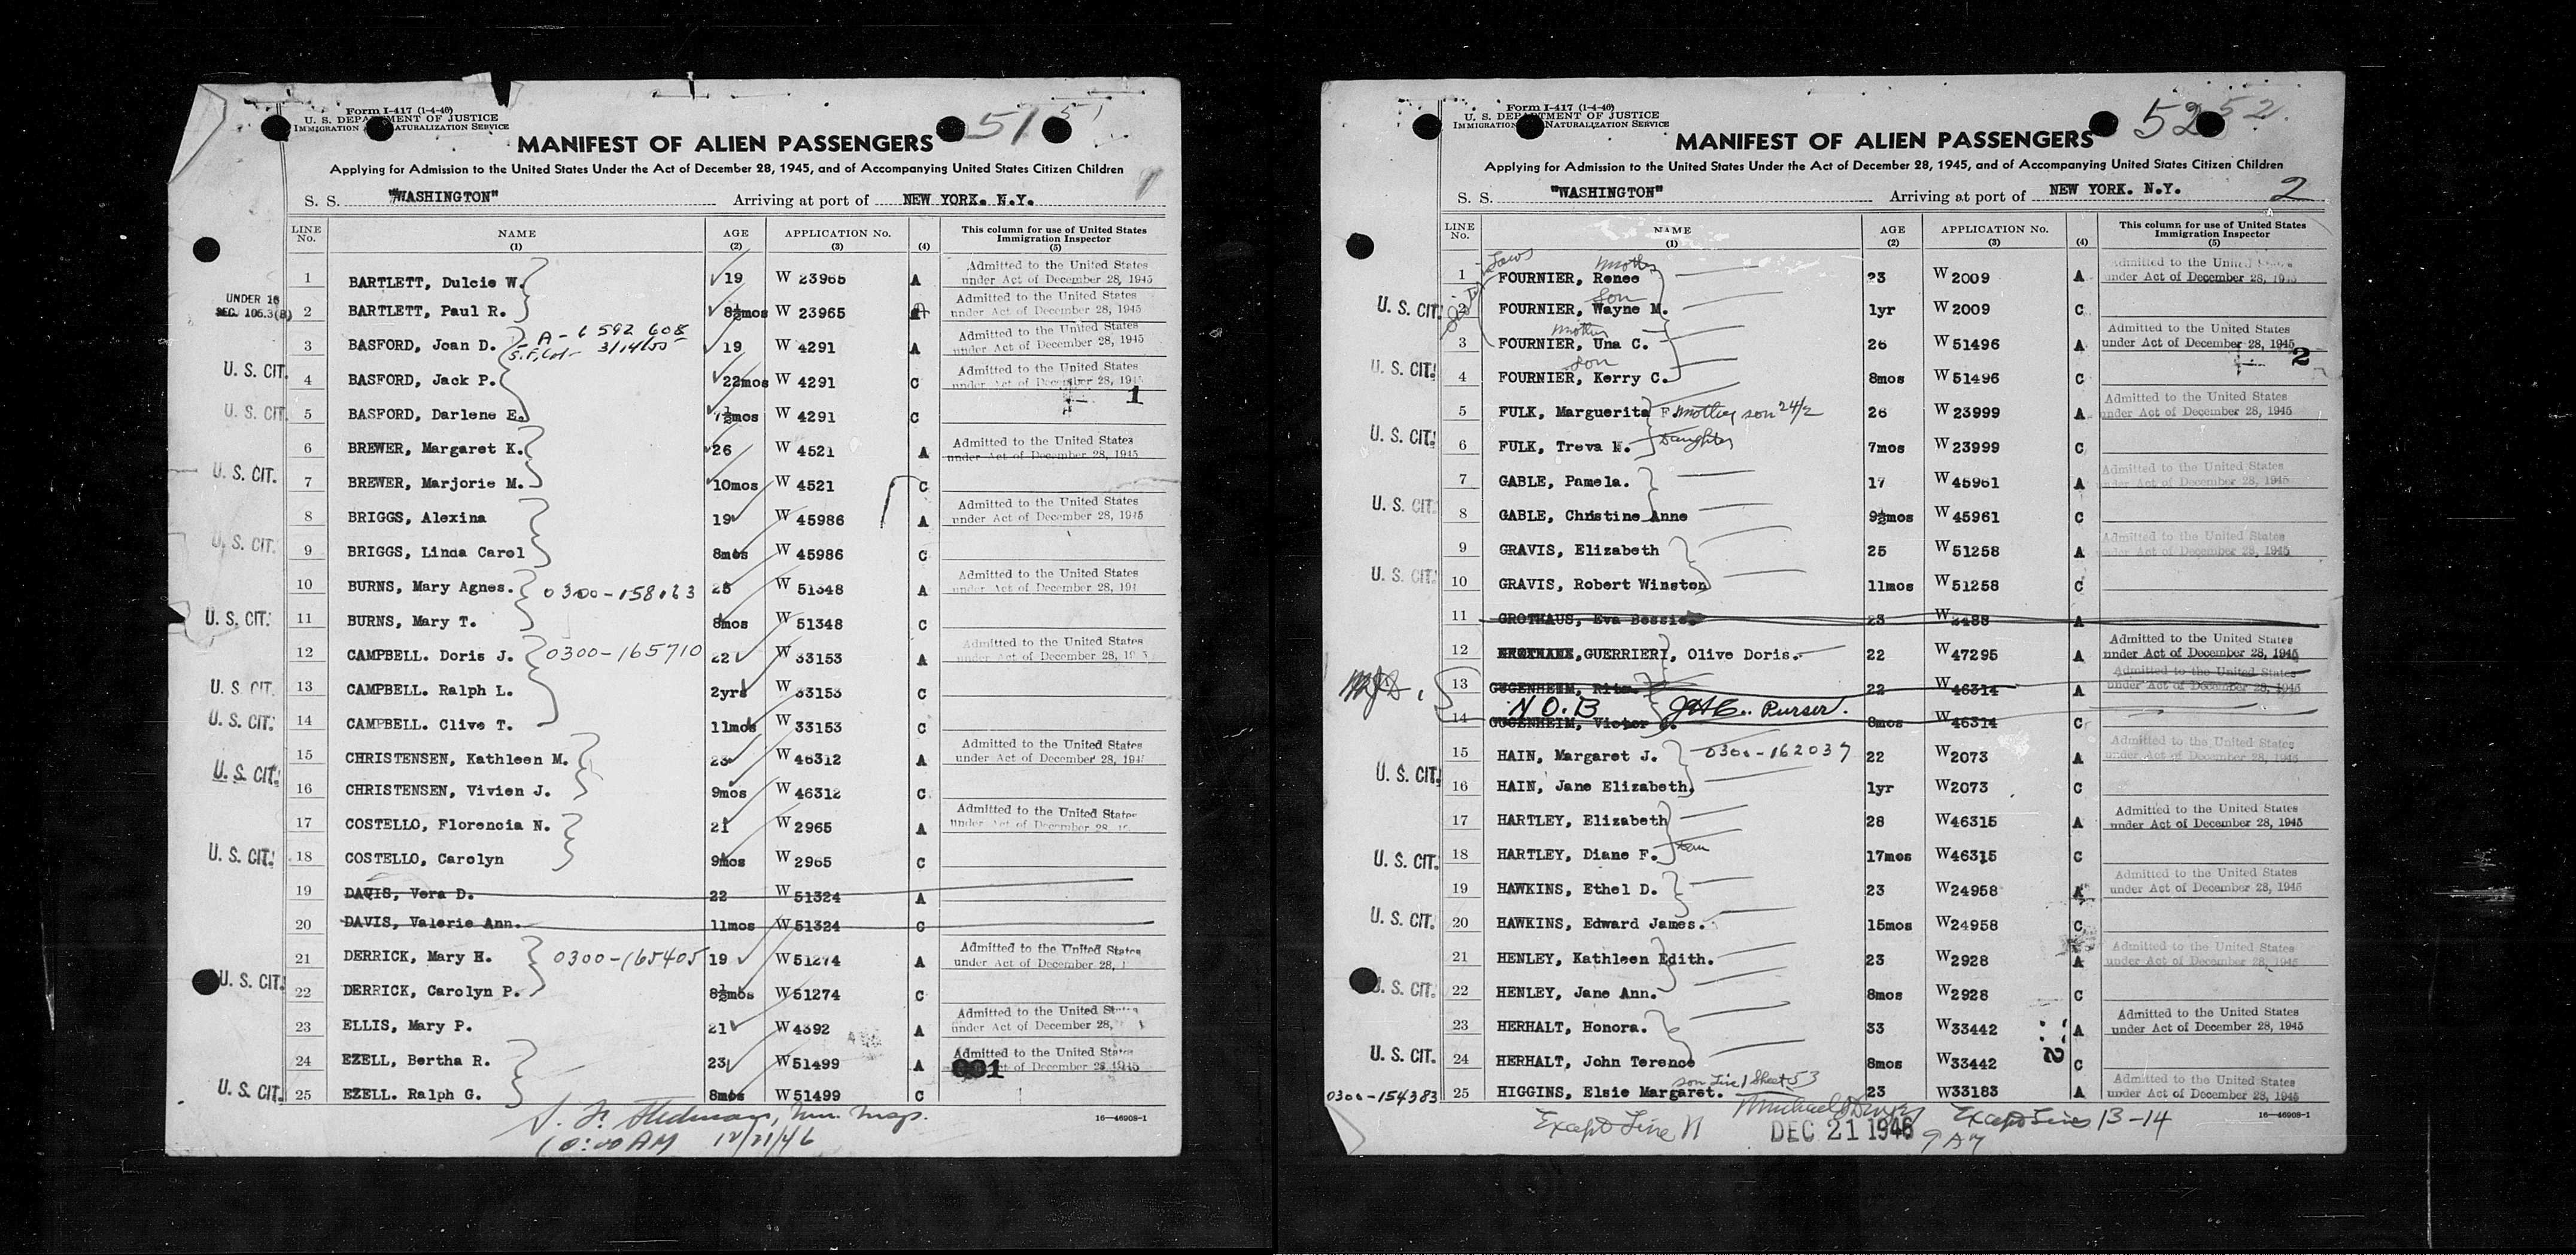 Form I-417 (1-4-46)
U. S. DEPARTMENT OF JUSTICE
IMMIGRATION NATURALIZATION SERVICE
51 51
MANIFEST OF ALIEN PASSENGERS
Applying for Admission to the United States Under the Act of December 28, 1945, and of Accompanying United States Citizen Children
1
S. S. "WASHINGTON" Arriving at port of NEW YORK. N.Y.
LINE No. NAME (1) AGE (2) APPLICATION No. (3) (4) This column for use of United States Immigration Inspector (5)
1 BARTLETT, Dulcie W. 19 W 23965 A Admitted to the United States under Act of December 28, 1945
UNDER 16 SEC. 106.3(B) 2 BARTLETT, Paul R. 8½mos W 23965 A Admitted to the United States under Act of December 28, 1945
3 BASFORD, Joan D. A-6 592 608 3/14/50 19 W 4291 A Admitted to the United States under Act of December 28, 1945
U. S. CIT. 4 BASFORD, Jack P. 22mos W 4291 C Admitted to the United States under Act of December 28, 1945
1
U. S. CIT. 5 BASFORD, Darlene E. 7½mos W 4291 C
6 BREWER, Margaret K. 26 W 4521 A Admitted to the United States under Act of December 28, 1945
U. S. CIT. 7 BREWER, Marjorie M. 10mos W 4521 C
8 BRIGGS, Alexina 19 W 45986 A Admitted to the United States under Act of December 28, 1945
U. S. CIT. 9 BRIGGS, Linda Carol 8mos W 45986 C
10 BURNS, Mary Agnes. 0300-158163 25 W 51348 A Admitted to the United States under Act of December 28, 194
U. S. CIT. 11 BURNS, Mary T. 8mos W 51348 C
12 CAMPBELL. Doris J. 0300-165710 22 W 33153 A Admitted to the United States under Act of December 28, 19
U. S. CIT. 13 CAMPBELL. Ralph L. 2yrs W 33153 C
U. S. CIT. 14 CAMPBELL. Clive T. 11mos W 33153 C
15 CHRISTENSEN, Kathleen M. 23 W 46312 A Admitted to the United States under Act of December 28, 194
U. S. CIT. 16 CHRISTENSEN, Vivien J. 9mos W 46312 C
17 COSTELLO, Florencia N. 21 W 2965 A Admitted to the United States under Act of December 28, 19
U. S. CIT. 18 COSTELLO, Carolyn 9mos W 2965 C
19 DAVIS, Vera D. 22 W 51324 A
20 DAVIS, Valerie Ann. 11mos W 51324 C
21 DERRICK, Mary H. 0300-165405 19 W 51274 A Admitted to the United States under Act of December 28, 1
U. S. CIT. 22 DERRICK, Carolyn P. 8½mos W 51274 C
23 ELLIS, Mary P. 21 W 4392 A Admitted to the United States under Act of December 28,
24 EZELL, Bertha R. 23 W 51499 A Admitted to the United States Act of December 28, 1945
001
U. S. CIT. 25 EZELL. Ralph G. 8mos W 51499 C
16—46908-1
10:00 AM 12/21/46
Form I-417 (1-4-46)
U. S. DEPARTMENT OF JUSTICE
IMMIGRATION NATURALIZATION SERVICE
52 52.
MANIFEST OF ALIEN PASSENGERS
Applying for Admission to the United States Under the Act of December 28, 1945, and of Accompanying United States Citizen Children
S. S. "WASHINGTON" Arriving at port of NEW YORK. N.Y. 2
LINE No. NAME (1) AGE (2) APPLICATION No. (3) (4) This column for use of United States Immigration Inspector (5)
Sister in Laws
mother
1 FOURNIER, Renee 23 W 2009 A Admitted to the United States under Act of December 28, 1945
son
U. S. CIT. 2 FOURNIER, Wayne M. 1yr W 2009 C
mother
3 FOURNIER, Una C. 26 W 51496 A Admitted to the United States under Act of December 28, 1945
2
son
U. S. CIT. 4 FOURNIER, Kerry C. 8mos W 51496 C
5 FULK, Marguerita F. mother son 24/2 26 W 23999 A Admitted to the United States under Act of December 28, 1945
U. S. CIT. 6 FULK, Treva M. Daughter 7mos W 23999 C
7 GABLE, Pamela. 17 W 45961 A Admitted to the United States under Act of December 28, 1945
U. S. CIT. 8 GABLE, Christine Anne 9½mos W 45961 C
9 GRAVIS, Elizabeth 25 W 51258 A Admitted to the United States under Act of December 28, 1945
U. S. CIT. 10 GRAVIS, Robert Winston 11mos W 51258 C
11 GROTHAUS, Eva Bessie. 23 W 2488 A
12 GUERRIERI, Olive Doris. 22 W 47295 A Admitted to the United States under Act of December 28, 1945
13 GUGENHEIM, Rita. 22 W 46314 A Admitted to the United States under Act of December 28, 1945
N.O.B Purser.
14 GUGENHEIM, Victor 8mos W 46314 C
15 HAIN, Margaret J. 0300-162037 22 W 2073 A Admitted to the United States under Act of December 28, 1945
U. S. CIT. 16 HAIN, Jane Elizabeth. 1yr W 2073 C
17 HARTLEY, Elizabeth 28 W 46315 A Admitted to the United States under Act of December 28, 1945
U. S. CIT. 18 HARTLEY, Diane F. 17mos W 46315 C
19 HAWKINS, Ethel D. 23 W 24958 A Admitted to the United States under Act of December 28, 1945
U. S. CIT. 20 HAWKINS, Edward James. 15mos W 24958 C
21 HENLEY, Kathleen Edith. 23 W 2928 A Admitted to the United States under Act of December 28, 1945
U. S. CIT. 22 HENLEY, Jane Ann. 8mos W 2928 C
23 HERHALT, Honora. 33 W 33442 A Admitted to the United States under Act of December 28, 1945
2
U. S. CIT. 24 HERHALT, John Terence 8mos W 33442 C
son Line 1 Sheet 53
0300-154383 25 HIGGINS, Elsie Margaret. 23 W 33183 A Admitted to the United States under Act of December 28, 1945
16—46908-1
Except Line 11 Except Lines 13-14
DEC 21 1946 9 AM